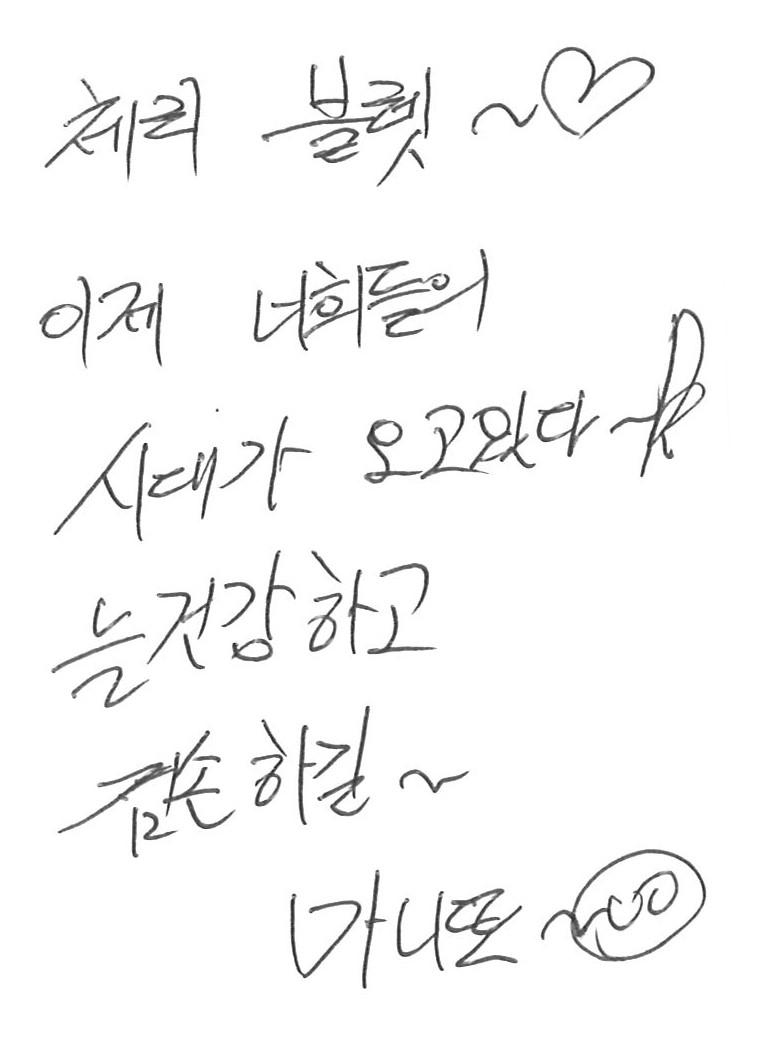 체리 블렛 ~♡
이제 너희들의
시대가 오고있다~
늘건강하고
겸손하길~
마니또~